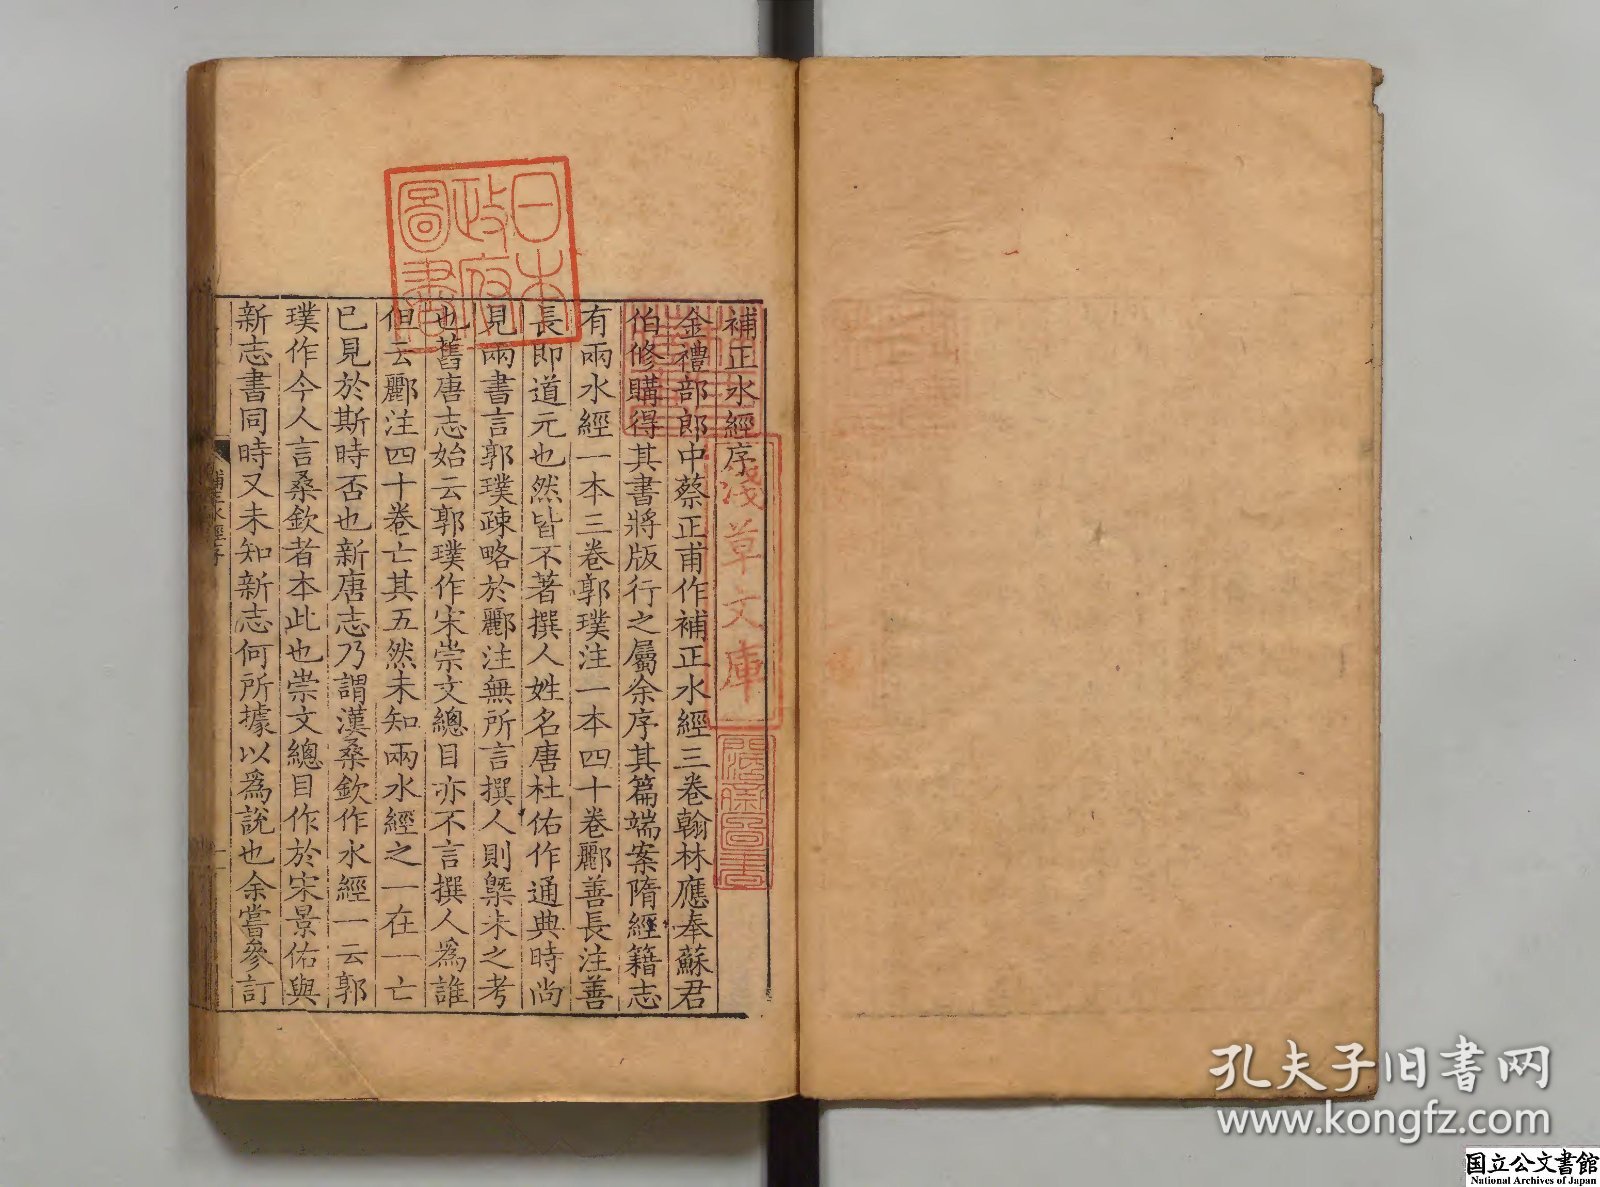 補正水經序
金禮部郎中蔡正甫作補正水經三卷翰林應奉蘇君
伯修購得其書將版行之屬余序其篇端案隋經籍志
有兩水經一本三卷郭璞注一本四十卷酈善長注善
長即道元也然皆不著撰人姓名唐杜佑作通典時尚
見兩書言郭璞疎略於酈注無所言撰人則槩未之考
也舊唐志始云郭璞作宋崇文總目亦不言撰人爲誰
但云酈注四十卷亡其五然未知兩水經之一在一亡
已見於斯時否也新唐志乃謂漢桑欽作水經一云郭
璞作今人言桑欽者本此也崇文總目作於宋景佑與
新志書同時又未知新志何所據以爲說也余嘗參訂
補正水經序
日本
政府
圖書
淺草文庫
孔夫子旧书网
www.kongfz.com
国立公文書館
National Archives of Japan